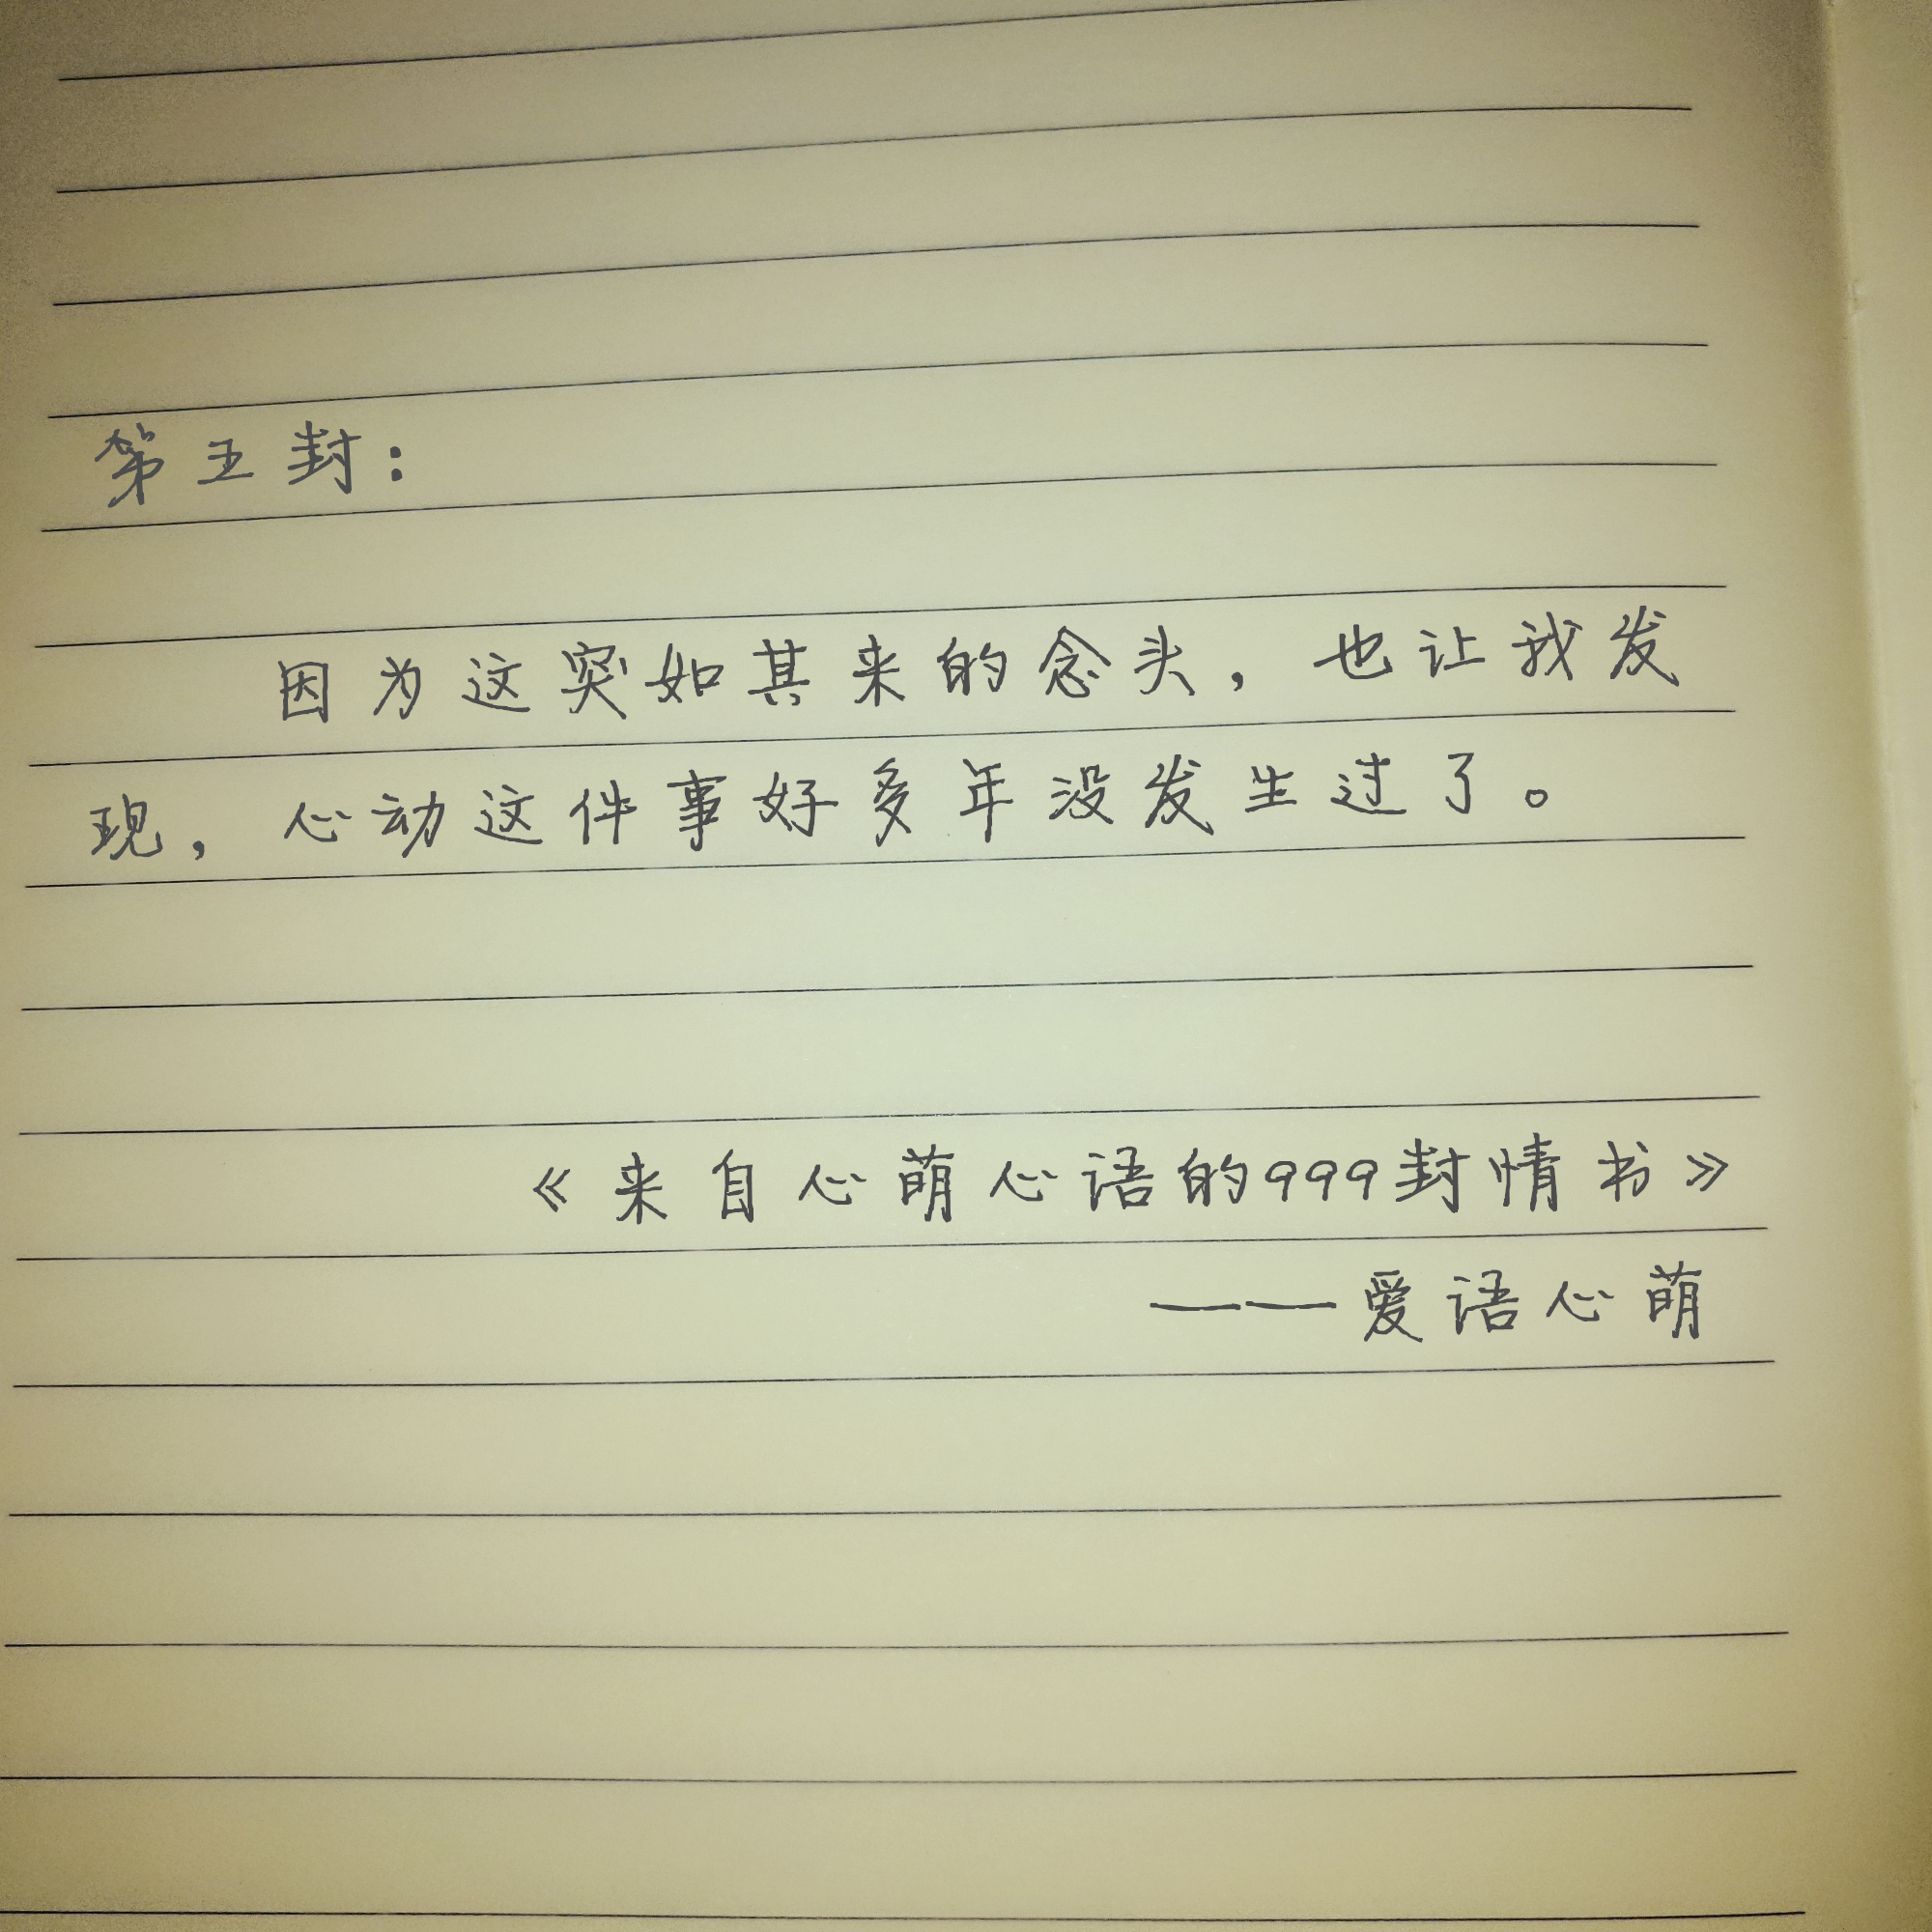 第五封：
因为这突如其来的念头，也让我发
现，心动这件事好多年没发生过了。
《来自心萌心语的999封情书》
——爱语心萌